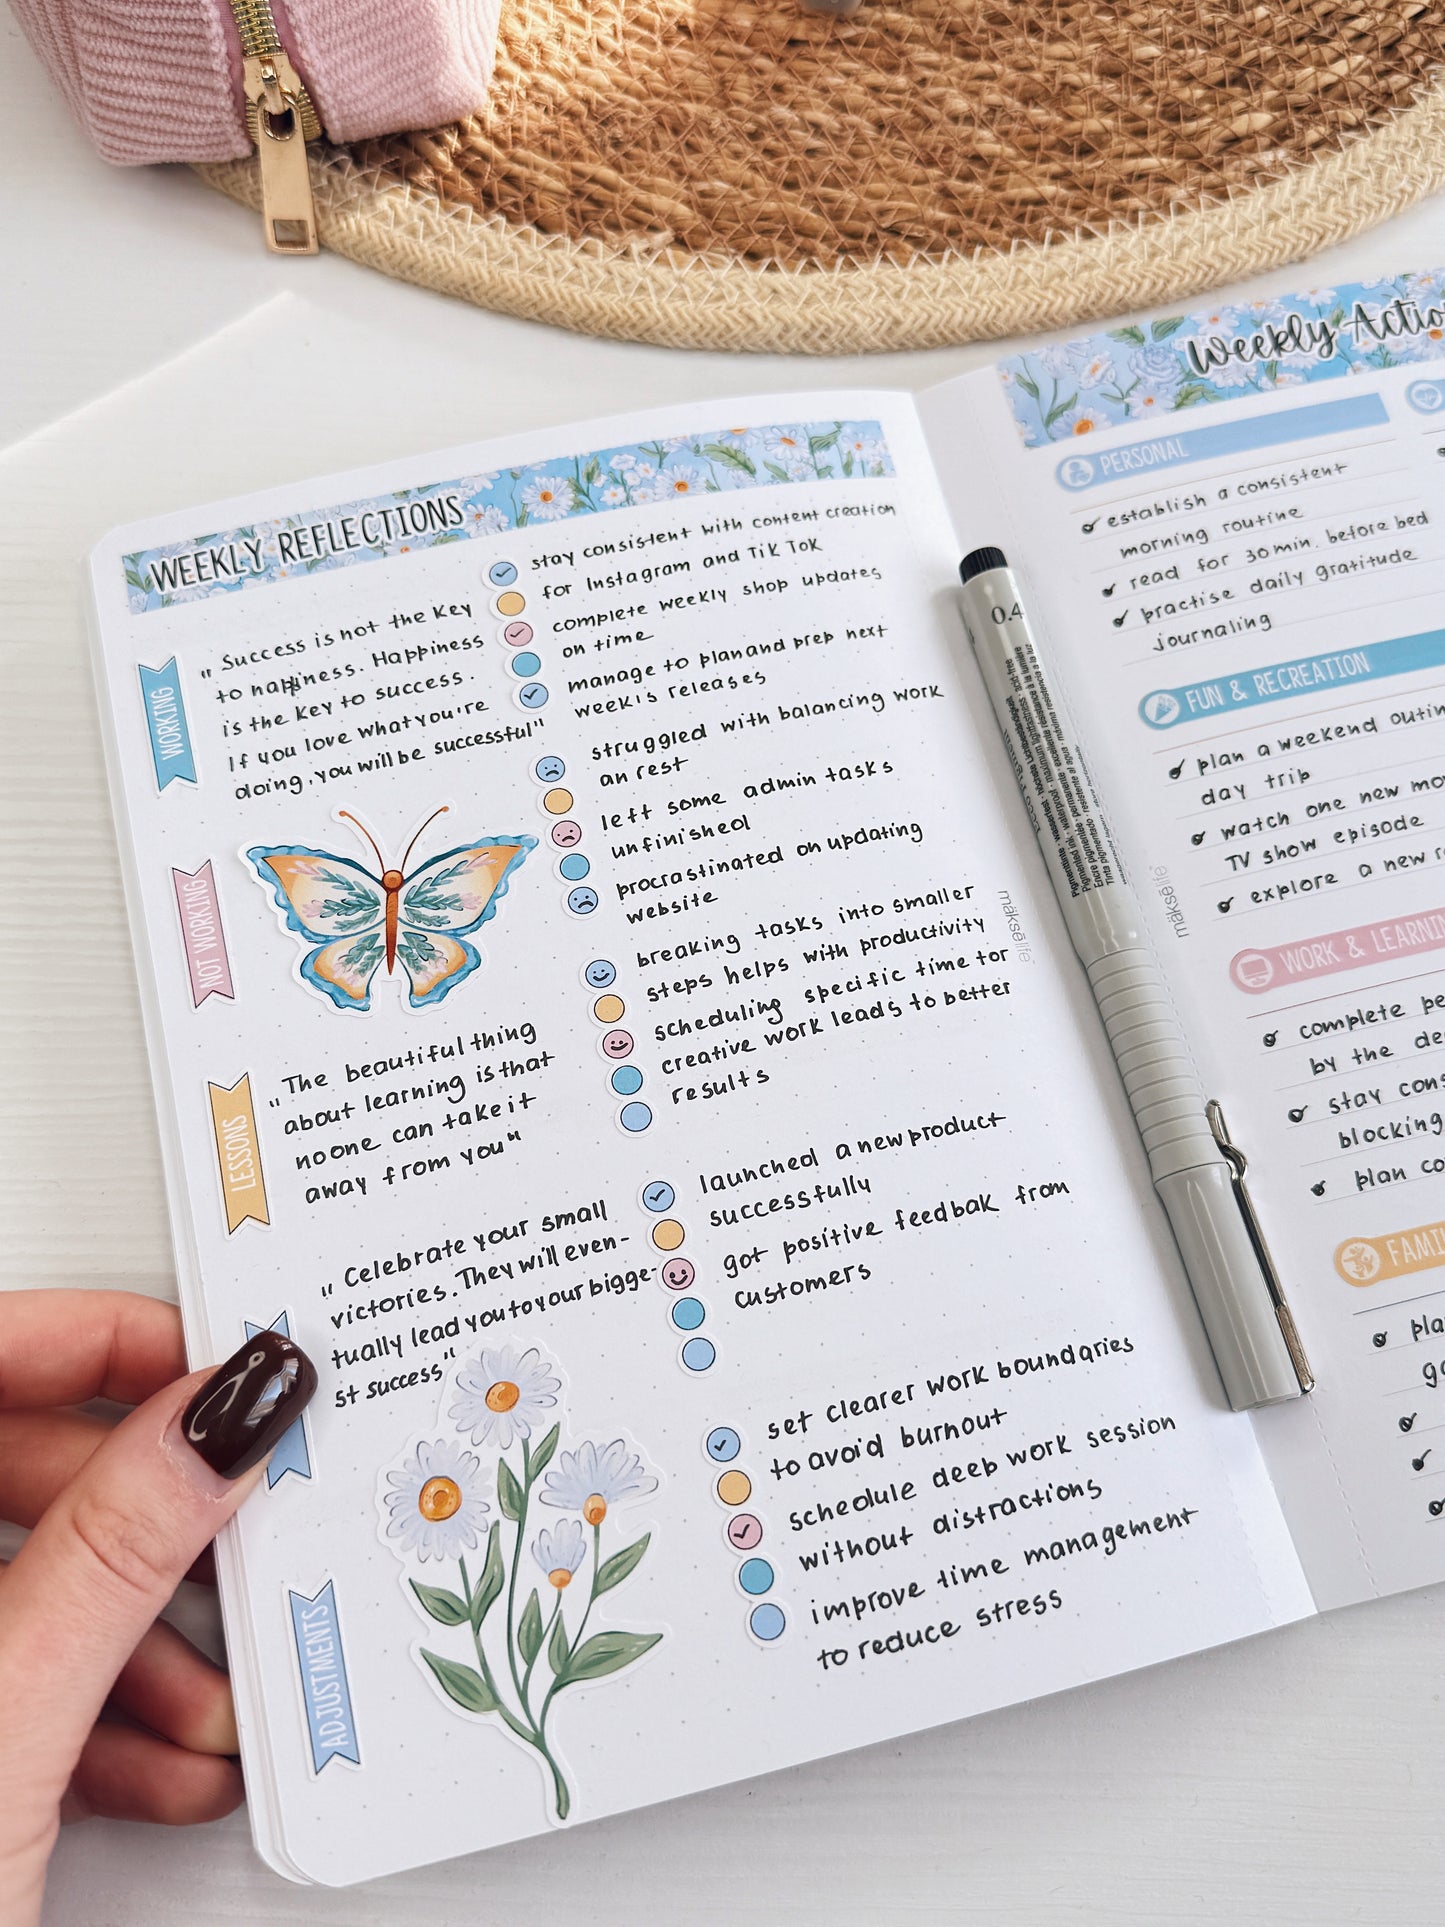 WEEKLY REFLECTIONS
WORKING
"Success is not the key
to happiness. Happiness
is the key to success.
If you love what you're
doing, you will be successful"
stay consistent with content creation
for Instagram and TikTok
complete weekly shop updates
on time
manage to plan and prep next
week's releases
NOT WORKING
struggled with balancing work
an rest
left some admin tasks
unfinished
procrastinated on updating
website
LESSONS
"The beautiful thing
about learning is that
no one can take it
away from you"
breaking tasks into smaller
steps helps with productivity
scheduling specific time for
creative work leads to better
results
"Celebrate your small
victories. They will even-
tually lead you to your bigge-
st success"
launched a new product
successfully
got positive feedbak from
customers
ADJUSTMENTS
set clearer work boundaries
to avoid burnout
schedule deep work session
without distractions
improve time management
to reduce stress
māksēlife
0.4
Weekly Actio
PERSONAL
establish a consistent
morning routine
read for 30 min. before bed
practise daily gratitude
journaling
FUN & RECREATION
plan a weekend outin
day trip
watch one new mo
TV show episode
explore a new r
māksēlife
WORK & LEARNIN
complete pe
by the de
stay cons
blocking
plan co
FAMI
pla
go